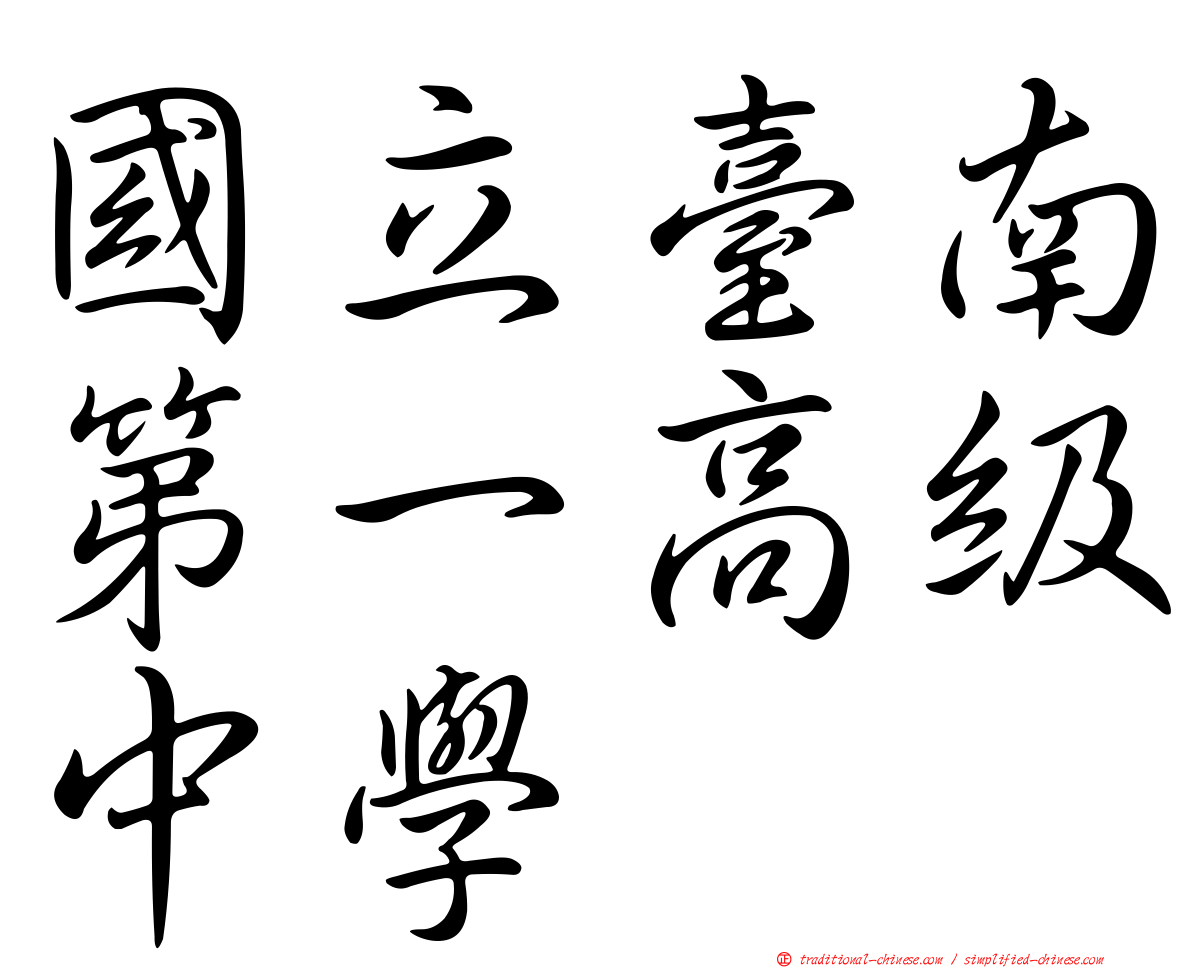 國立臺南
第一高級
中學
正 traditional-chinese.com / simplified-chinese.com